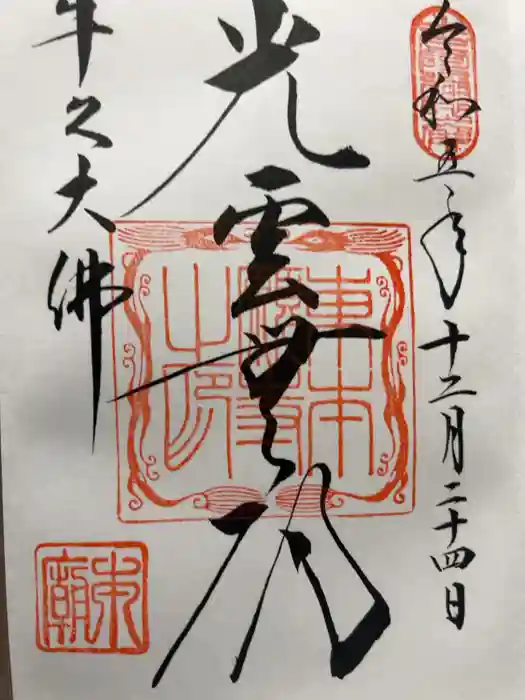 令和五年十二月二十四日
光雲無碍
牛久大佛
東本
願寺
之印
本廟